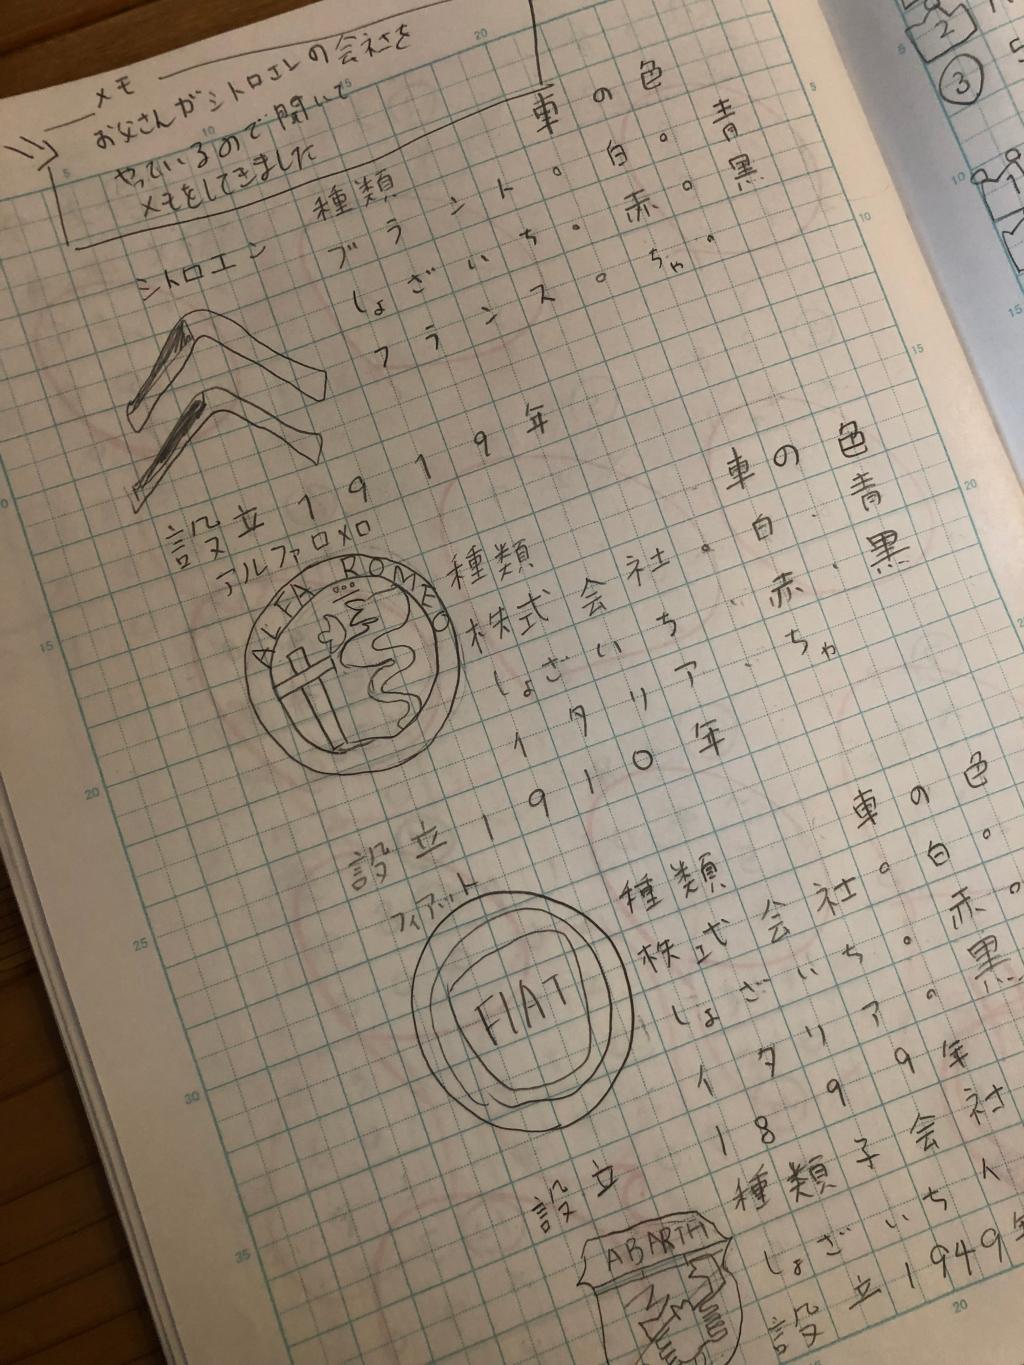 メモ
お父さんがシトロエンの会社を
やっているので聞いて
メモをしてきました
シトロエン
種類
ブランド。
しょざいち。
フランス。
車の色
白。青
赤。黒
ちゃ。
設立1919年
アルファロメロ
ALFA ROMEO
種類
株式会社。
しょざいち
イタリア
車の色
白.青
赤.黒
ちゃ
設立1910年
フィアット
FIAT
種類
株式会社。
しょざいち。
イタリア。
車の色
白。
赤。
黒
設立1899年
ABARTH
種類子会社
しょざいち
設立1949年
2
③
1